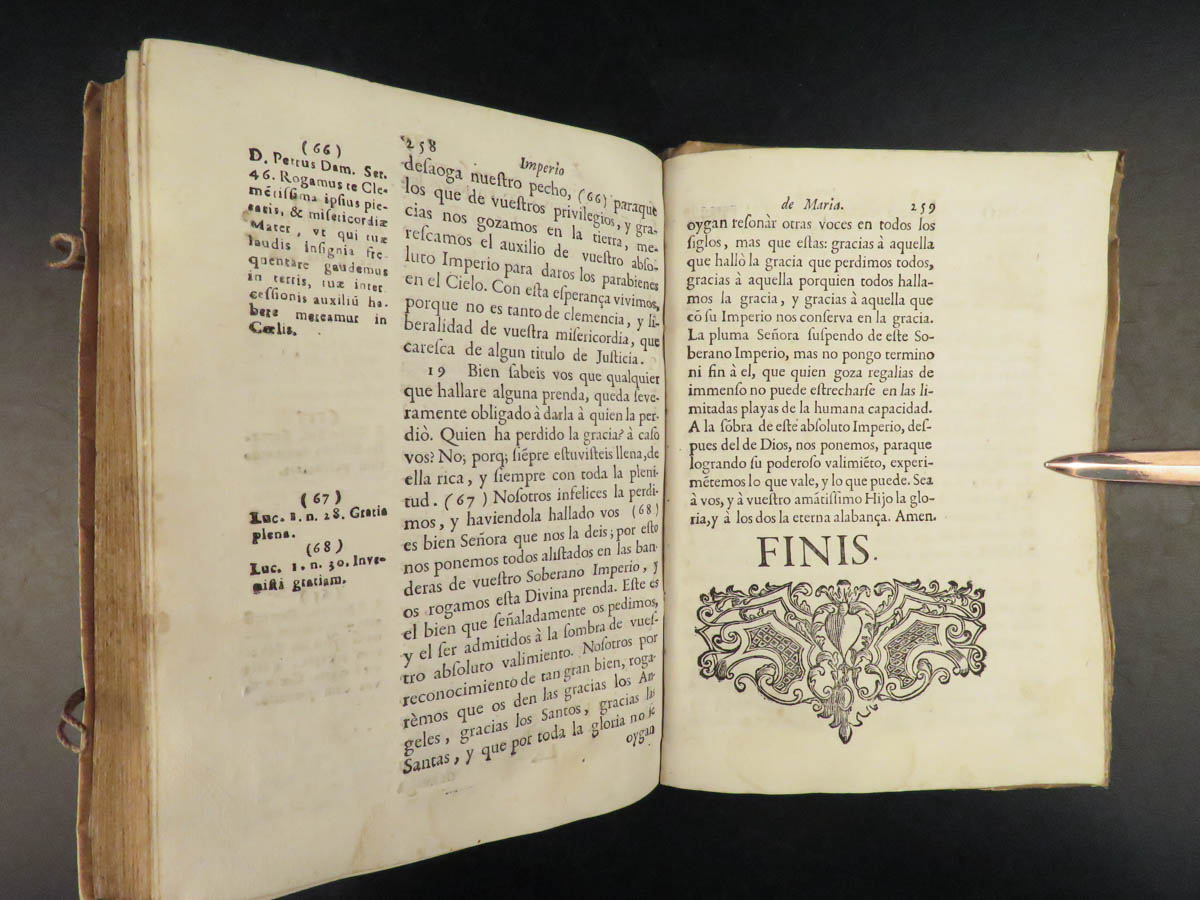 (66)
D. Pettus Dam. Ser.
46. Rogamus te Cle-
mẽtissima ipsius pie-
tatis, & misericordiæ
Mater, vt qui tuæ
laudis insignia fre-
quentare gaudemus
in terris, tuæ inter
cessionis auxiliũ ha-
bere mereamur in
Cœlis.
(67)
Luc. 1. n. 28. Gratia
plena.
(68)
Luc. 1. n. 30. Inve-
nisti gratiam.
258 Imperio
desaoga nuestro pecho, (66) paraque
los que de vuestros privilegios, y gra-
cias nos gozamos en la tierra, me-
rescamos el auxilio de vuestro abso-
luto Imperio para daros los parabienes
en el Cielo. Con esta esperança vivimos,
porque no es tanto de clemencia, y li-
beralidad de vuestra misericordia, que
caresca de algun titulo de Justicia.
19 Bien sabeis vos que qualquier
que hallare alguna prenda, queda seve-
ramente obligado à darla à quien la per-
diò. Quien ha perdido la gracia? à caso
vos? No; porq; siẽpre estuvisteis llena, de
ella rica, y siempre con toda la pleni-
tud. (67) Nosotros infelices la perdi-
mos, y haviendola hallado vos (68)
es bien Señora que nos la deis; por esto
nos ponemos todos alistados en las ban-
deras de vuestro Soberano Imperio, y
os rogamos esta Divina prenda. Este es
el bien que señaladamente os pedimos,
y el ser admitidos à la sombra de vues-
tro absoluto valimiento. Nosotros por
reconocimiento de tan gran bien, roga-
rèmos que os den las gracias los An-
geles, gracias los Santos, gracias las
Santas, y que por toda la gloria no se
oygan
de Maria. 259
oygan resonàr otras voces en todos los
siglos, mas que estas: gracias à aquella
que hallò la gracia que perdimos todos,
gracias à aquella porquien todos halla-
mos la gracia, y gracias à aquella que
cõ su Imperio nos conserva en la gracia.
La pluma Señora suspendo de este So-
berano Imperio, mas no pongo termino
ni fin à el, que quien goza regalias de
immenso no puede estrecharse en las li-
mitadas playas de la humana capacidad.
A la sõbra de este absoluto Imperio, des-
pues del de Dios, nos ponemos, paraque
logrando su poderoso valimiẽto, experi-
mẽtemos lo que vale, y lo que puede. Sea
à vos, y à vuestro amãtissimo Hijo la glo-
ria, y à los dos la eterna alabança. Amen.
FINIS.